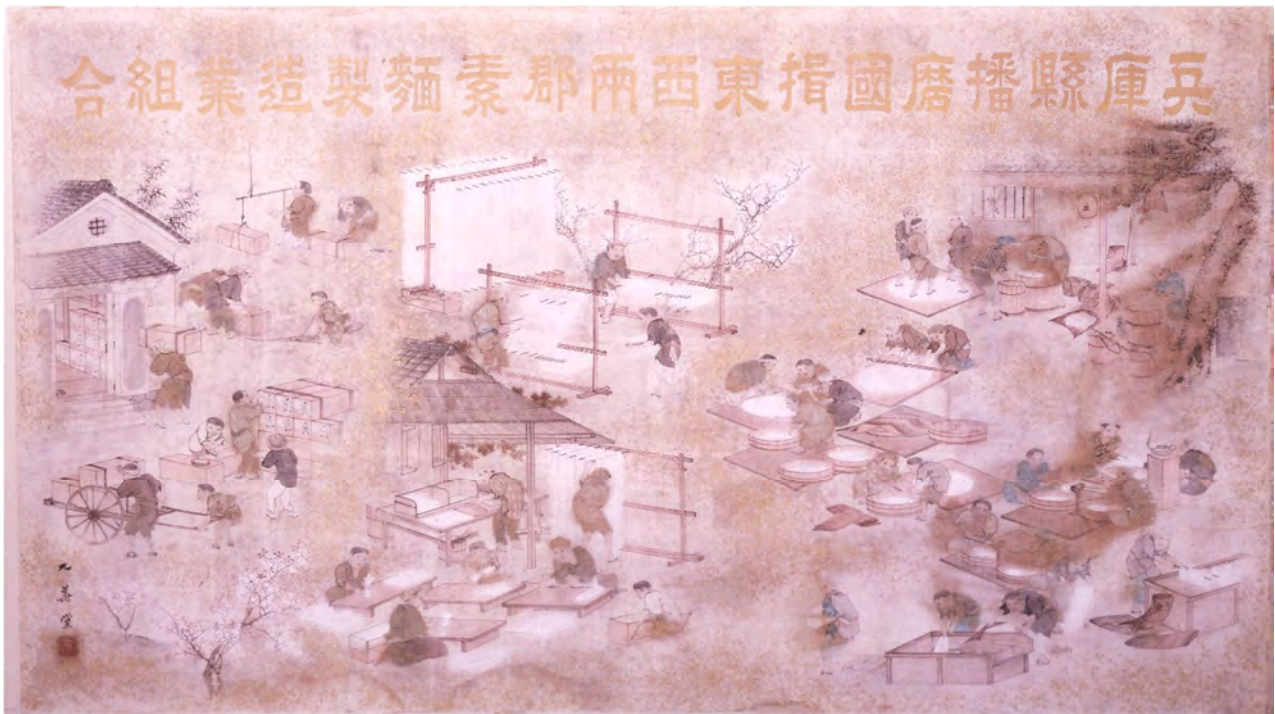 兵庫縣播磨國揖東西兩郡素麵製造業組合